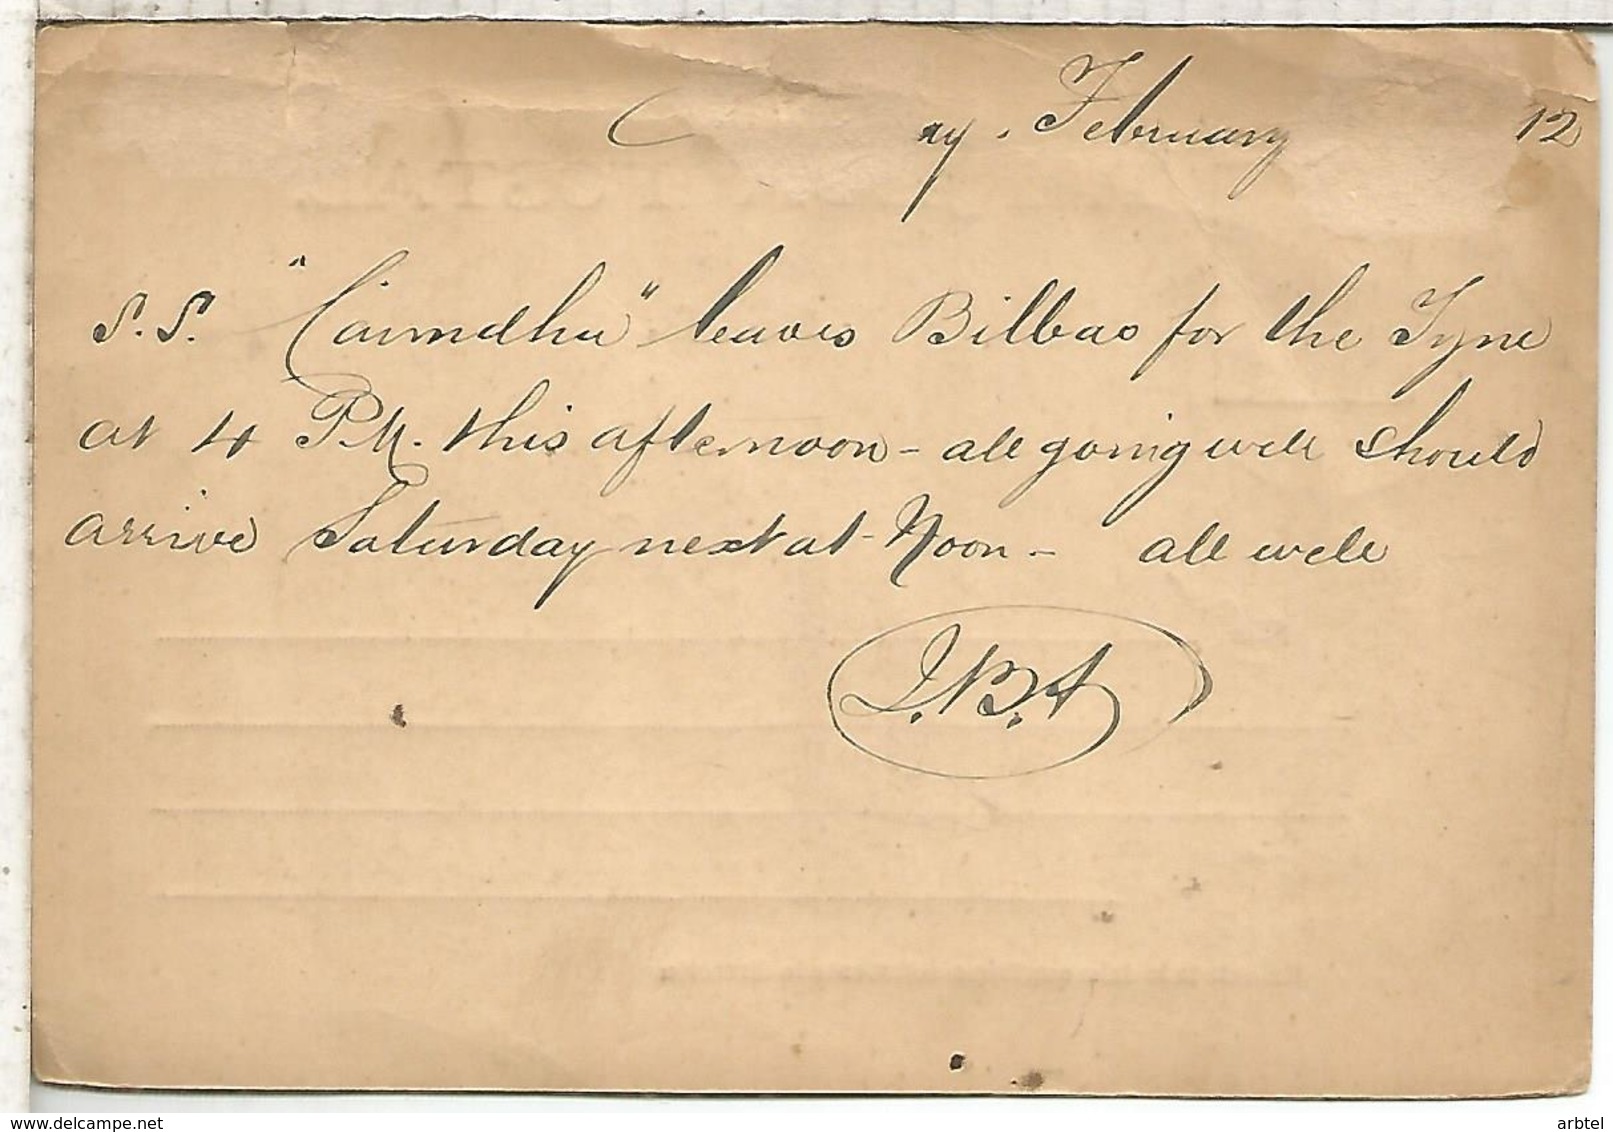 ay. February 12
S.S. "Cairndhu" leaves Bilbao for the Tyne
at 4 P.M. this afternoon - all going well should
arrive Saturday next at Noon - all well
J.B.A
arbtel